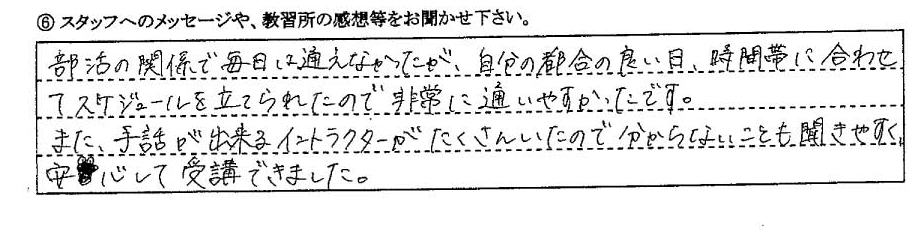 ⑥ スタッフへのメッセージや、教習所の感想等をお聞かせ下さい。
部活の関係で毎日は通えなかったが、自分の都合の良い日、時間帯に合わせ
てスケジュールを立てられたので非常に通いやすかったです。
また、手話が出来るイントラクターがたくさんいたので分からないことも聞きやすく、
安心して受講できました。